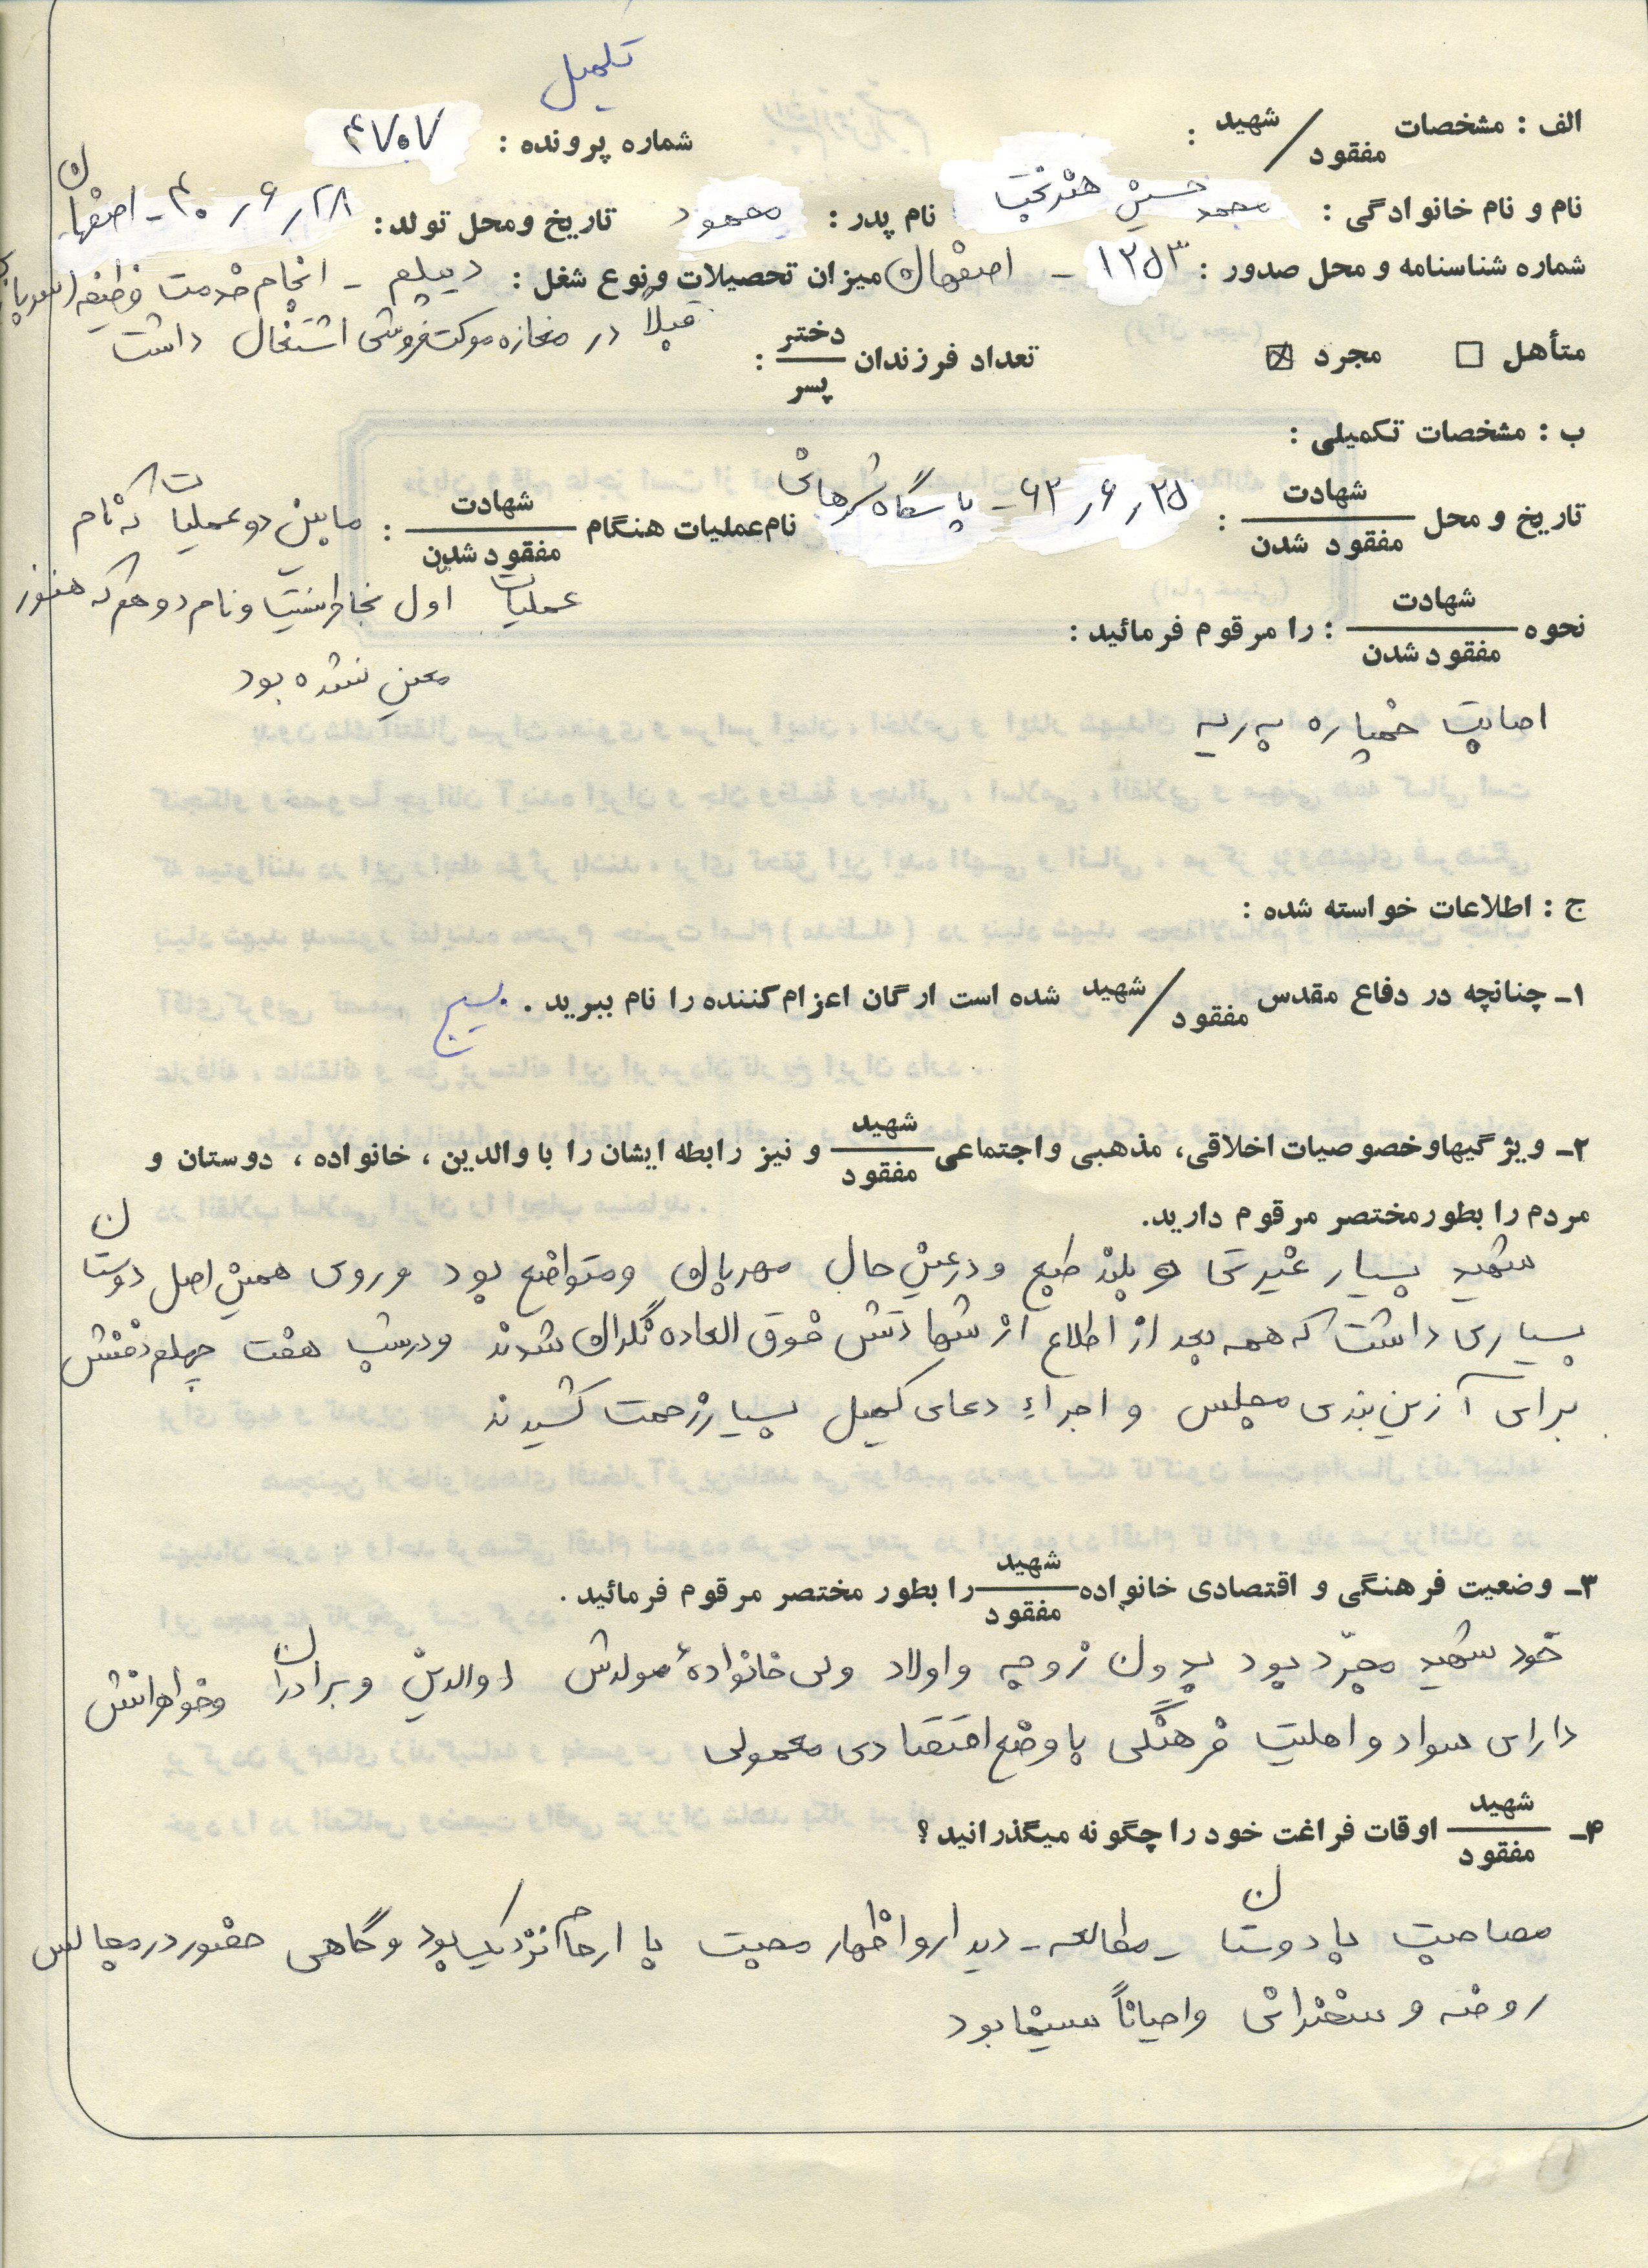 تکمیل
الف : مشخصات شهید / مفقود :
شماره پرونده : ۴۷۰۷
نام و نام خانوادگی : محمد حسین هنربخت نام پدر : محمود تاریخ و محل تولد : ۲۸ ر ۶ ر ۴۰ - اصفهان
شماره شناسنامه و محل صدور : ۱۲۵۳ - اصفهان میزان تحصیلات و نوع شغل : دیپلم - انجام خدمت وظیفه (سرباز
قبلاً در مغازه موکت فروشی اشتغال داشت
متأهل ☐ مجرد ☒ تعداد فرزندان دختر / پسر :
ب : مشخصات تکمیلی :
تاریخ و محل شهادت / مفقود شدن : ۲۵ ر ۶ ر ۶۲ - پاسگاه شرهانی نام عملیات هنگام شهادت / مفقود شدن : مابین دو عملیات که نام
عملیات اول بخاطر نیست و نام دوهم که هنوز
معین نشده بود
نحوه شهادت / مفقود شدن : را مرقوم فرمائید :
اصابت خمپاره به ریه
ج : اطلاعات خواسته شده :
۱- چنانچه در دفاع مقدس شهید / مفقود شده است ارگان اعزام کننده را نام ببرید . بسیج
۲- ویژگیها و خصوصیات اخلاقی، مذهبی و اجتماعی شهید / مفقود و نیز رابطه ایشان را با والدین ، خانواده ، دوستان و
مردم را بطور مختصر مرقوم دارید.
شهید بسیار غیرتی و بلند طبع و در عین حال مهربان و متواضع بود و روی همین اصل دوستان
بسیاری داشت که همه بعد از اطلاع از شهادتش فوق العاده نگران شدند و در شب هفت چهلم دفنش
برای آزین بندی مجلس و اجراء دعای کمیل بسیار زحمت کشیدند
۳- وضعیت فرهنگی و اقتصادی خانواده شهید / مفقود را بطور مختصر مرقوم فرمائید .
خود شهید مجرّد بود بدون زوجه و اولاد ولی خانوادهٔ مولدش (والدین و برادران و خواهرانش
دارای سواد و اهلیت فرهنگی با وضع اقتصادی معمولی
۴- شهید / مفقود اوقات فراغت خود را چگونه میگذرانید ؟
مصاحبت با دوستان - مطالعه - دیدار و اظهار محبت با ارحام نزدیک بود و گاهی حضور در مجالس
روضه و سخنرانی و احیاناً سینما بود